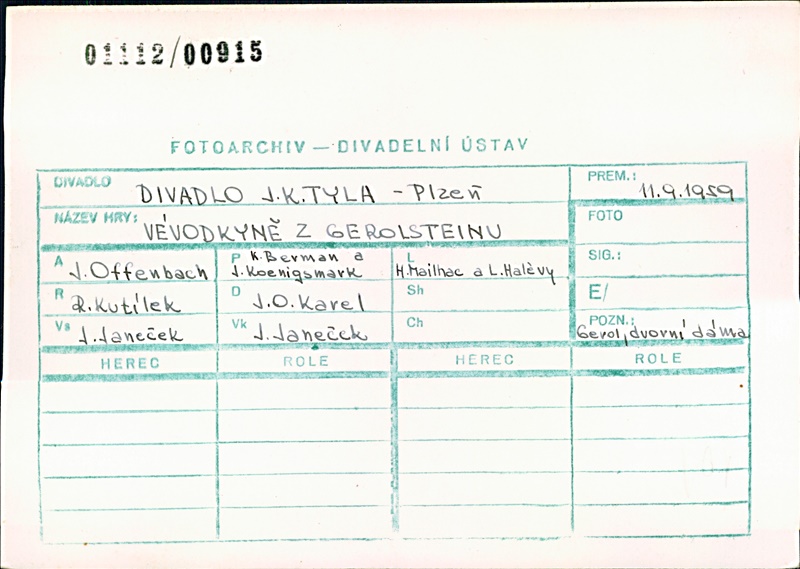 01112/00915
FOTOARCHIV — DIVADELNÍ ÚSTAV
DIVADLO DIVADLO J.K.TYLA - Plzeň
PREM.: 11.9.1959
NÁZEV HRY: VÉVODKYNĚ Z GEROLSTEINU
FOTO
A J.Offenbach
P K.Berman a J.Koenigsmark
L H.Mailhac a L.Halèvy
SIG.:
R R.Kutílek
D J.O.Karel
Sh
E/
Vs J.Janeček
Vk J.Janeček
Ch
POZN.: Gerol, dvorní dáma
HEREC ROLE HEREC ROLE